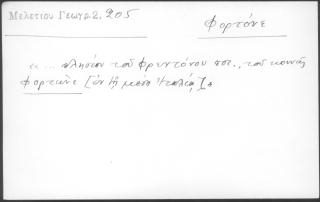 Μελετίου Γεωγρ. 2, 205
Φορτόνε
«... πλησίον τοῦ Φρεντόνου ποτ., τοῦ κοινῶς
Φορτόνε [ἐν τῇ μέσῃ Ἰταλίᾳ]»